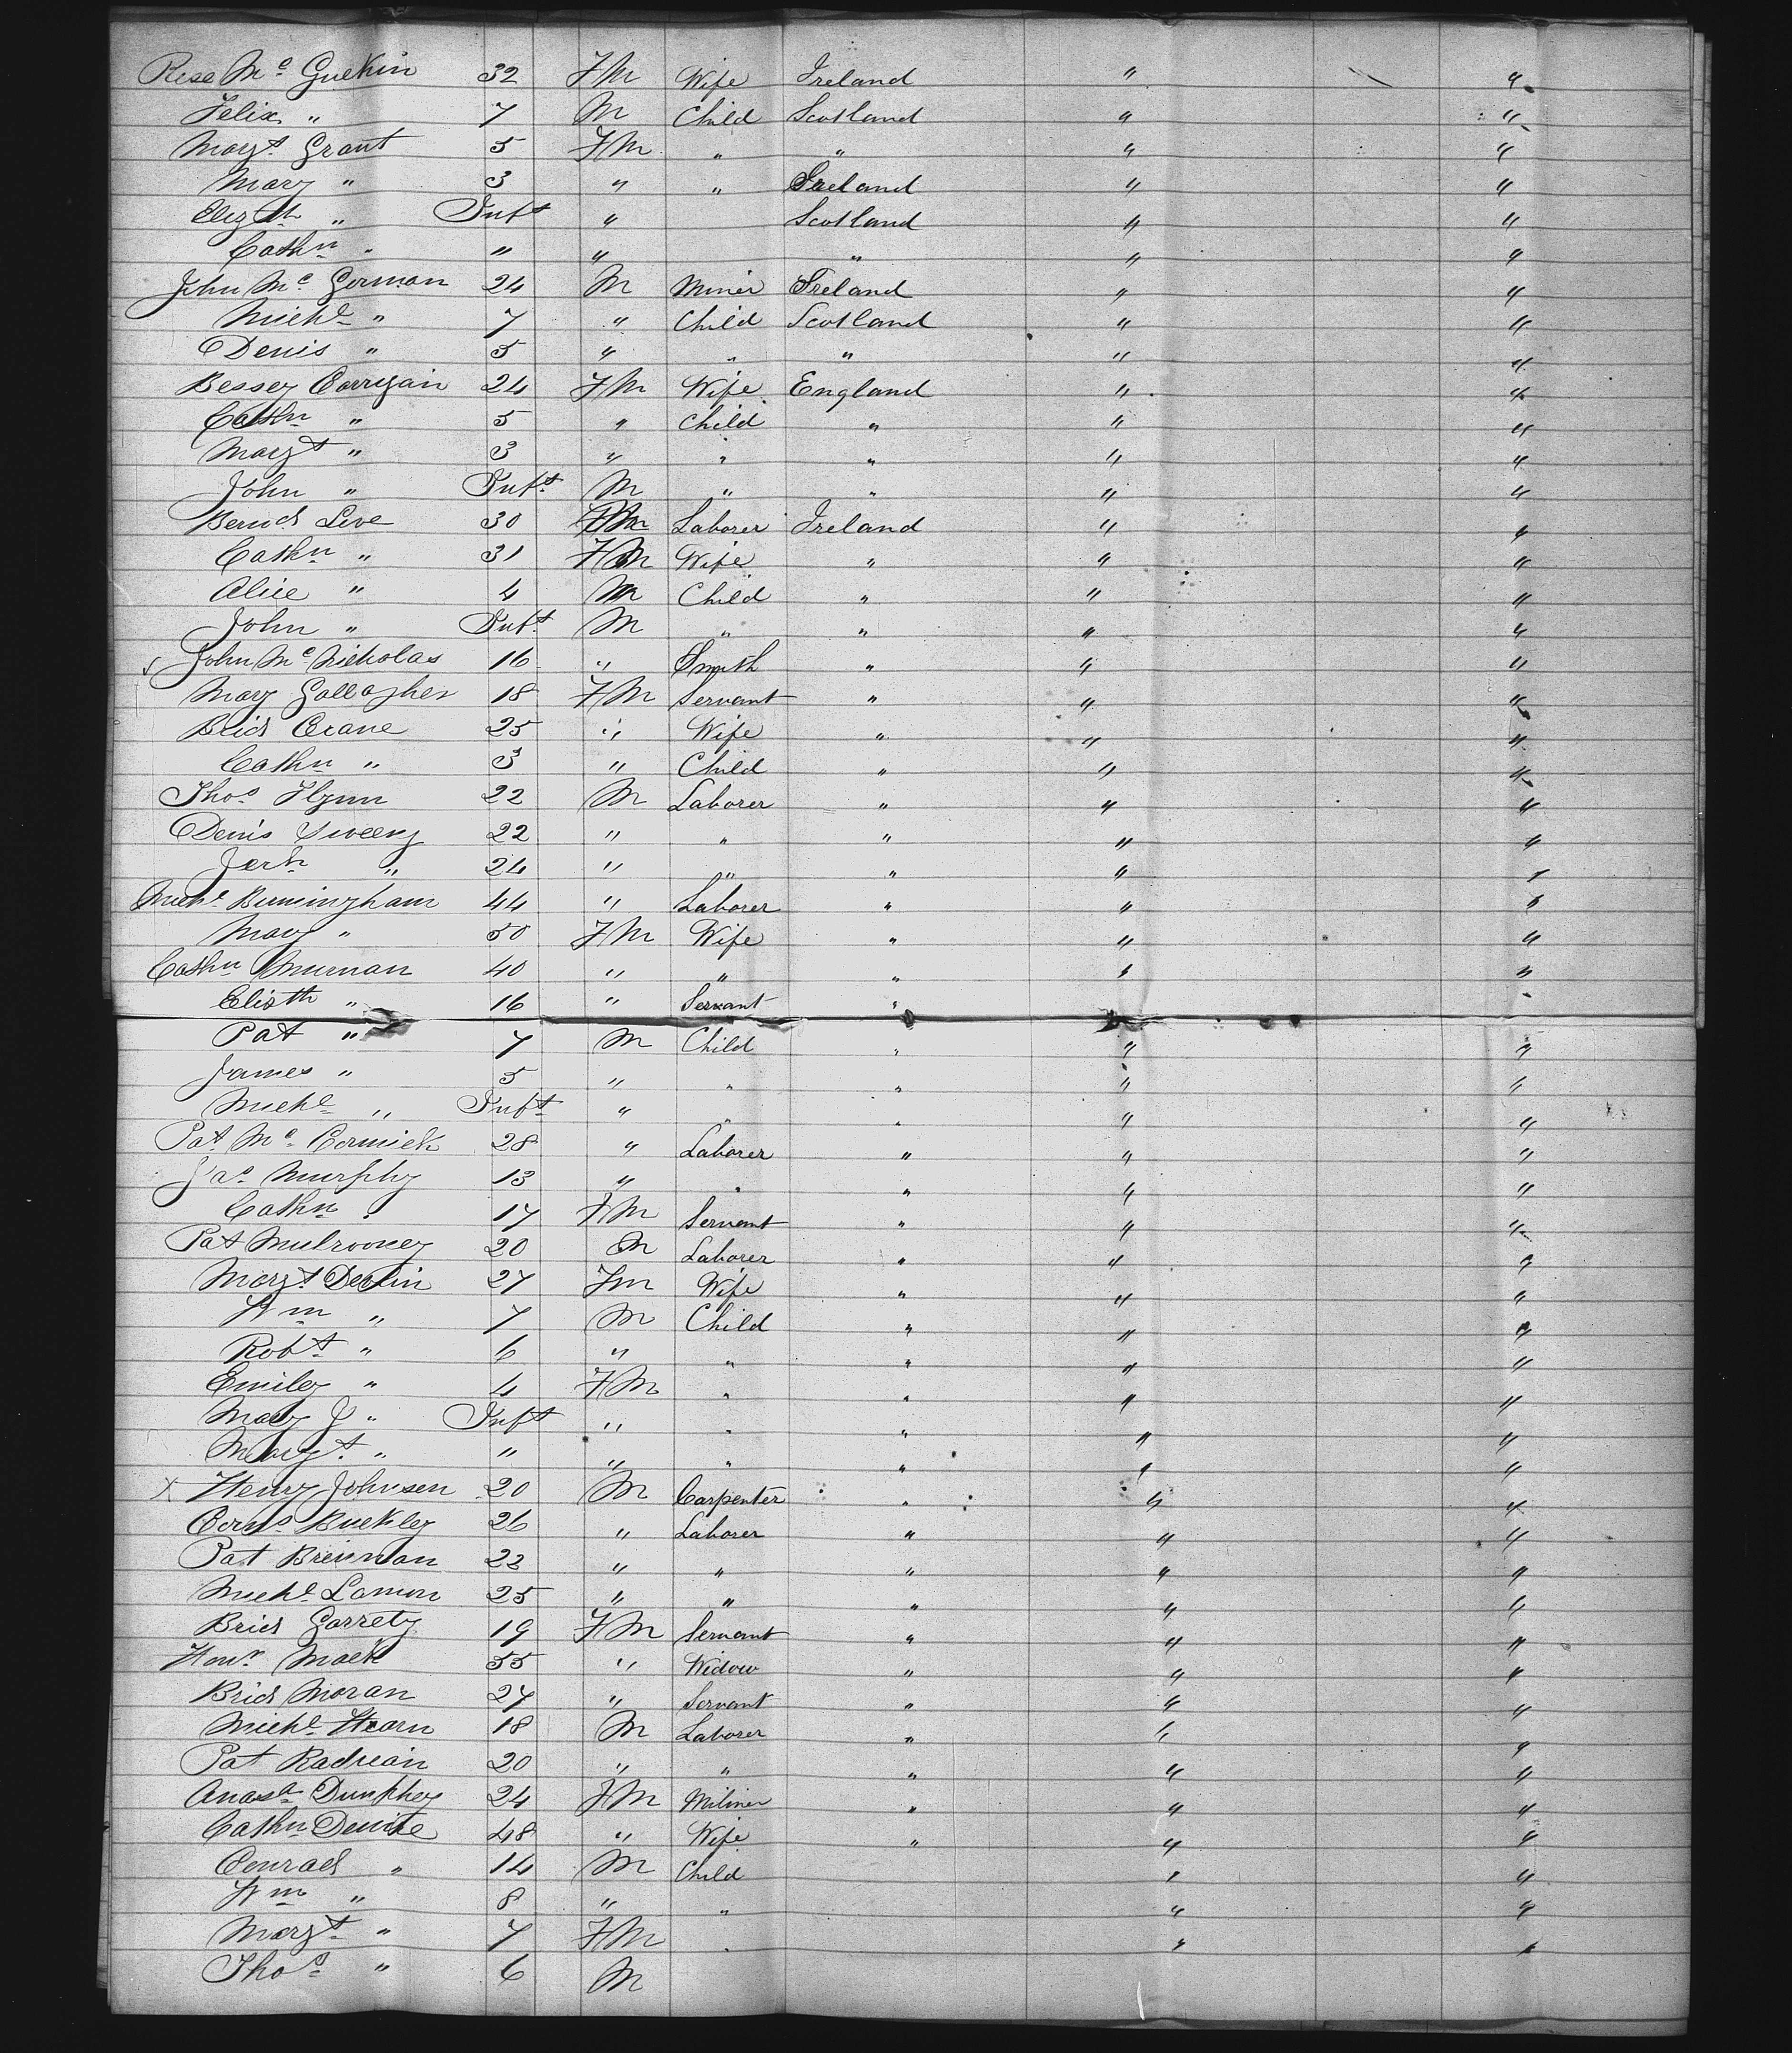 Rose Mc Guckin 32 FM Wife Ireland " "
Felix " 7 M Child Scotland " "
Margt Grant 5 FM " " " "
Mary " 3 " " Ireland " "
Elizth " Inft " Scotland " "
Cathn " " " " " "
John Mc Gorman 24 M Miner Ireland " "
Michl " 7 " Child Scotland " "
Denis " 5 " " " " "
Bessey Carrigain 24 FM Wife England " "
Cathn " 5 " Child " " "
Margt " 3 " " " " "
John " Inft M " " " "
Bernd 30 M Laborer Ireland " "
Cathn " 31 FM Wife " " "
Alice " 4 M Child " " "
John " Inft M " " " "
John Mc Nicholas 16 " Smith " " "
Mary Gallagher 18 FM Servant " " "
Brid Crane 25 " Wife " " "
Cathn " 3 " Child " " "
Thos Flynn 22 M Laborer " " "
Denis Sweeny 22 " " " " "
Jerh " 24 " " " " "
Michl Birmingham 44 " Laborer " " "
Mary " 50 FM Wife " " "
Cathn Murnan 40 " " " " "
Elisth " 16 " Servant " "
Pat " 7 M Child " " "
James " 5 " " " " "
Michl " Inft " " " " "
Pat Mc Cormick 28 " Laborer " " "
Jas Murphy 13 " " " " "
Cathn " 17 FM Servant " " "
Pat Mulrooney 20 M Laborer " " "
Margt Devlin 27 FM Wife " " "
Wm " 7 M Child " " "
Robt " 6 " " " " "
Emiley " 4 FM " " " "
Mary J " Inft " " " " "
Margt " " " " " " "
x Henry Johnsen 20 M Carpenter " " "
Corns Buckley 26 " Laborer " " "
Pat Brennan 22 " " " " "
Michl Lamon 25 " " " " "
Brid Garrety 19 FM Servant " " "
Honr Mack 55 " Widow " " "
Brid Moran 27 " Servant " " "
Michl Hearn 18 M Laborer " " "
Pat 20 " " " " "
Anasta Dunphey 24 FM Miliner " " "
Cathn 48 " Wife " " "
Conrad " 14 M Child " "
Wm " 8 " " " "
Margt " 7 FM " " "
Thos " 6 M